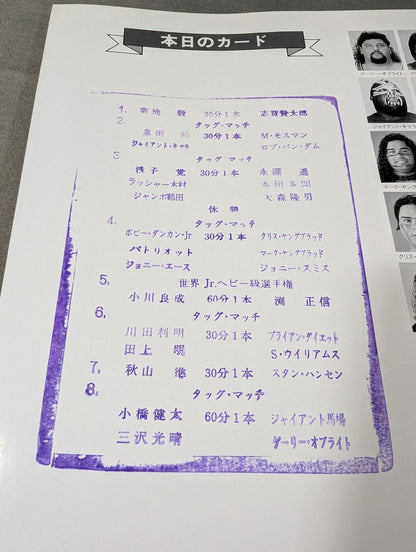 本日のカード
1. 菊地 毅 30分1本 志賀賢太郎
2. タッグ・マッチ
泉田 純 30分1本 M・モスマン
ジャイアント・キマラ ロブ・バン・ダム
3 タッグ マッチ
浅子 覚 30分1本 永源 遙
ラッシャー木村 本田多聞
ジャンボ鶴田 大森隆男
休憩
4. タッグ・マッチ
ボビー・ダンカン・Jr 30分1本 クリス・ヤングブラッド
パトリオット マーク・ヤングブラッド
ジョニー・エース ジョニー・スミス
5. 世界Jr.ヘビー級選手権
小川良成 60分1本 渕 正信
6. タッグ・マッチ
川田利明 30分1本 ブライアン・ダイエット
田上 明 S・ウイリアムス
7. 秋山 準 30分1本 スタン・ハンセン
8. タッグ・マッチ
小橋健太 60分1本 ジャイアント馬場
三沢光晴 ゲーリー・オブライト
ゲーリー・オブライト
ジャイアント・キマラ
マーク・ヤング
クリス・